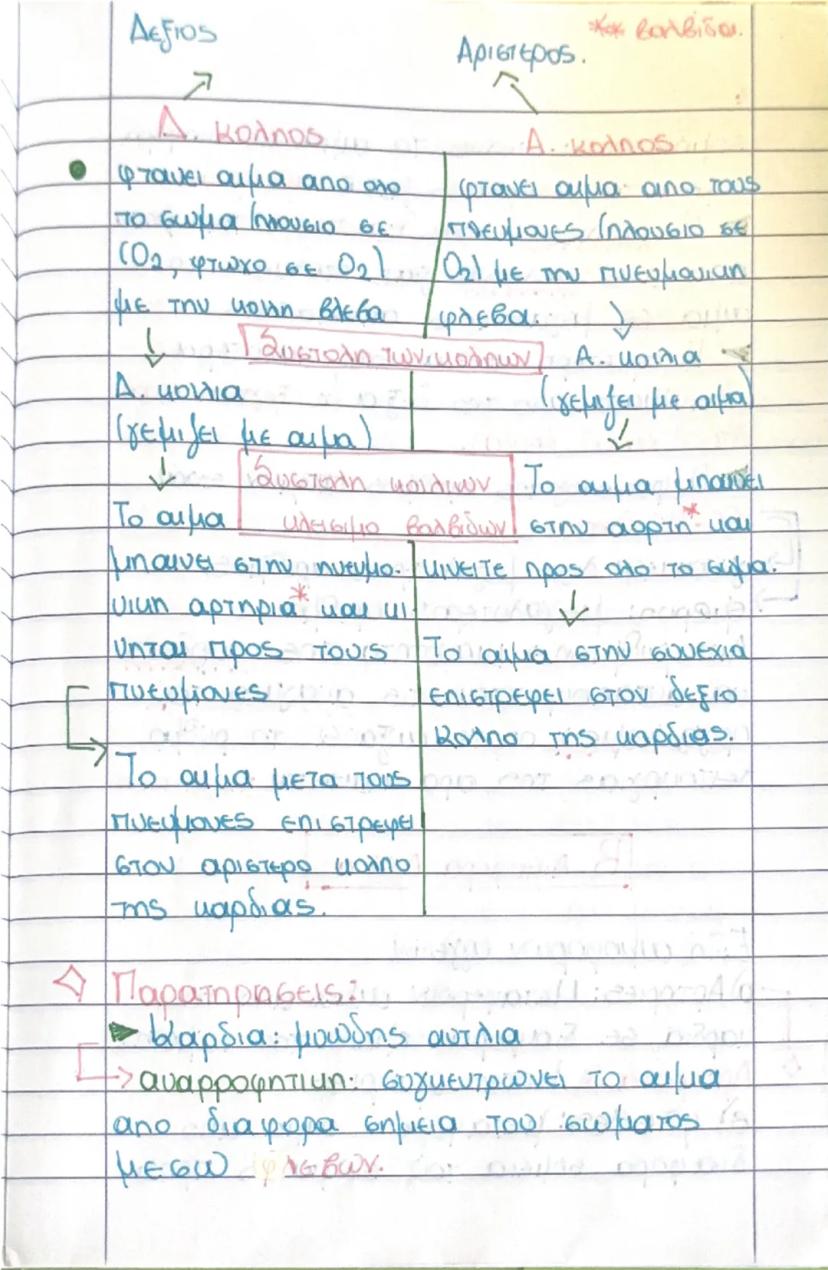 Δεξιος
** βαλβιδαι.
Αριστερος.
Δ. κολπος
Α. κολπος
φτανει αιμα απο ολο
το σωμα (πλουσιο σε
CO2, φτωχο σε O2)
με την κοιλη βλεβα
φτανει αιμα απο τους
πνευμονες (πλουσιο σε
O2) με την πνευμονικη
φλεβα
Συστολη των κολπων
Δ. κοιλια
(γεμιζει με αιμα)
Α. κοιλια
(γεμιζει με αιμα)
Συστολη κοιλιων
κλεισιμο βαλβιδων
Το αιμα
μπαινει στην πνευμο-
νικη αρτηρια* και κι
νηται προς τους
πνευμονες
Το αιμα μετα τους
πνευμονες επιστρεφει
στον αριστερο κολπο
της καρδιας.
Το αιμα μπαινει
στην αορτη* και
κινειτε προς ολο το σωμα.
Το αιμα στην συνεχια
επιστρεφει στον δεξιο
κολπο της καρδιας.
Παρατηρησεις:
Καρδια: μυωδης αντλια
αναρροφητικη: συγκεντρωνει το αιμα
απο διαφορα σημεια του σωματος
μεσω φλεβων.